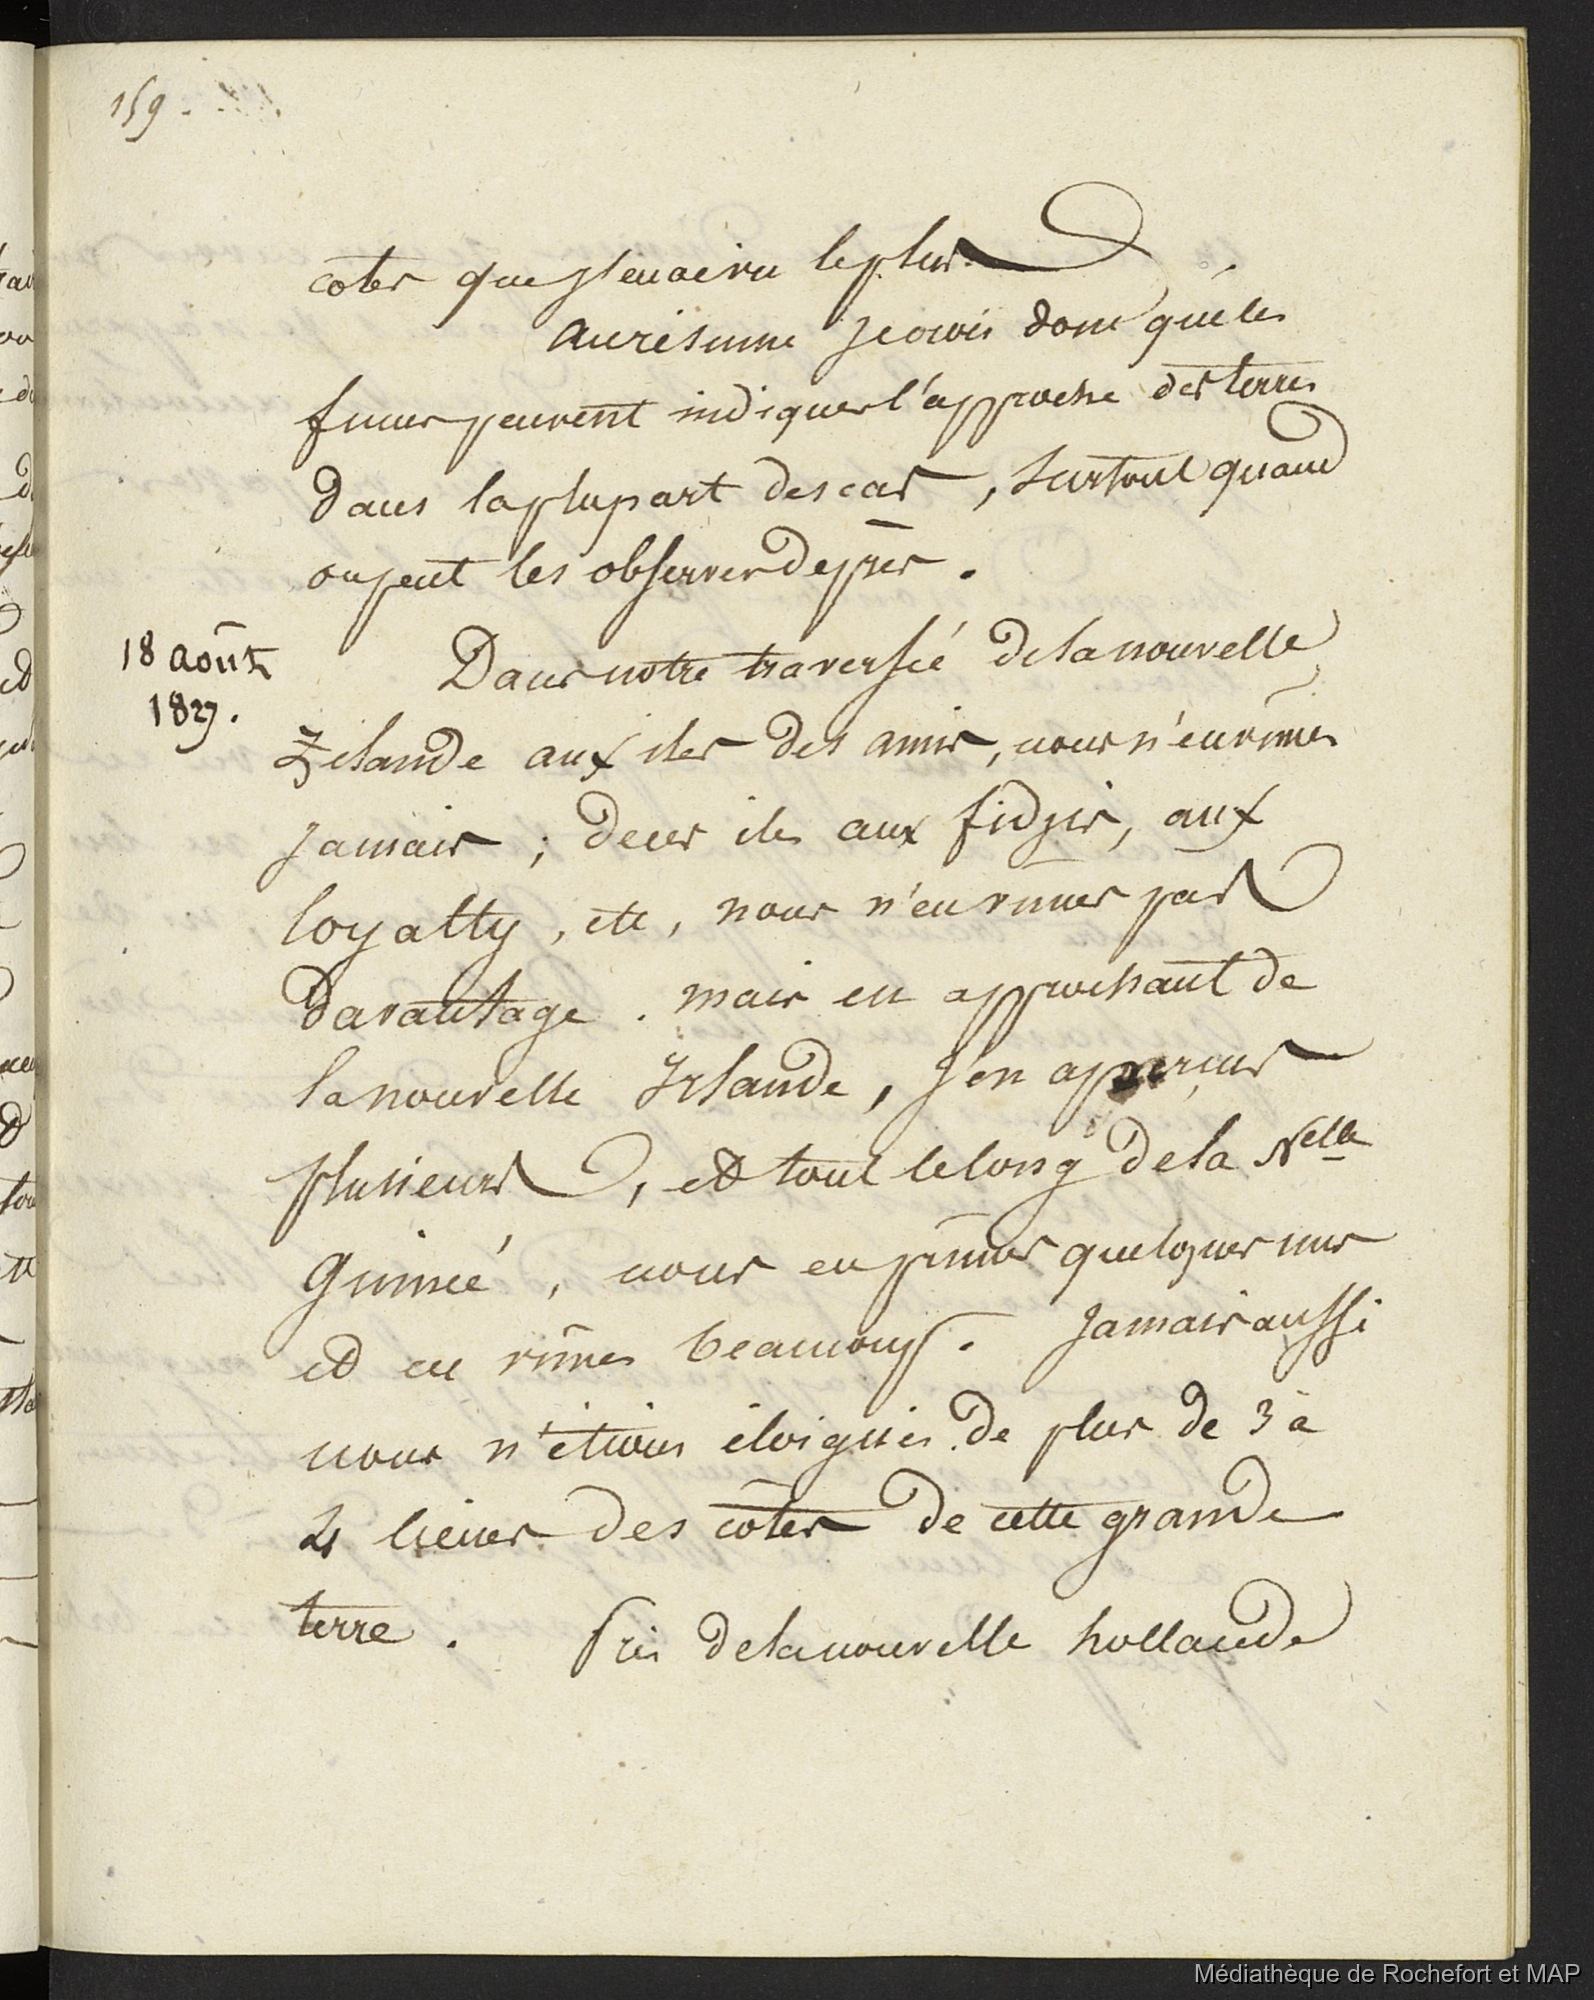 159.
cotes que j'en ai vu le plus.
Au résumé je crois donc que les
fucus peuvent indiquer l'approche des terres
dans la plupart des cas, surtout quand
on peut les observer de près.
18 août
1827.
Dans notre traversée de la nouvelle
Zélande aux iles des amis, nous n'en vîmes
jamais ; de ces iles aux fidjis, aux
loyalty, etc, nous n'en vimes pas
davantage. mais en approchant de
la nouvelle Irlande, j'en aperçus
plusieurs, et tout le long de la Nelle
Guinée, nous en prîmes quelques uns
et en vîmes beaucoup. Jamais aussi
nous n'étions éloignés de plus de 3 à
4 lieues des côtes de cette grande
terre. Près de la nouvelle hollande
Médiathèque de Rochefort et MAP